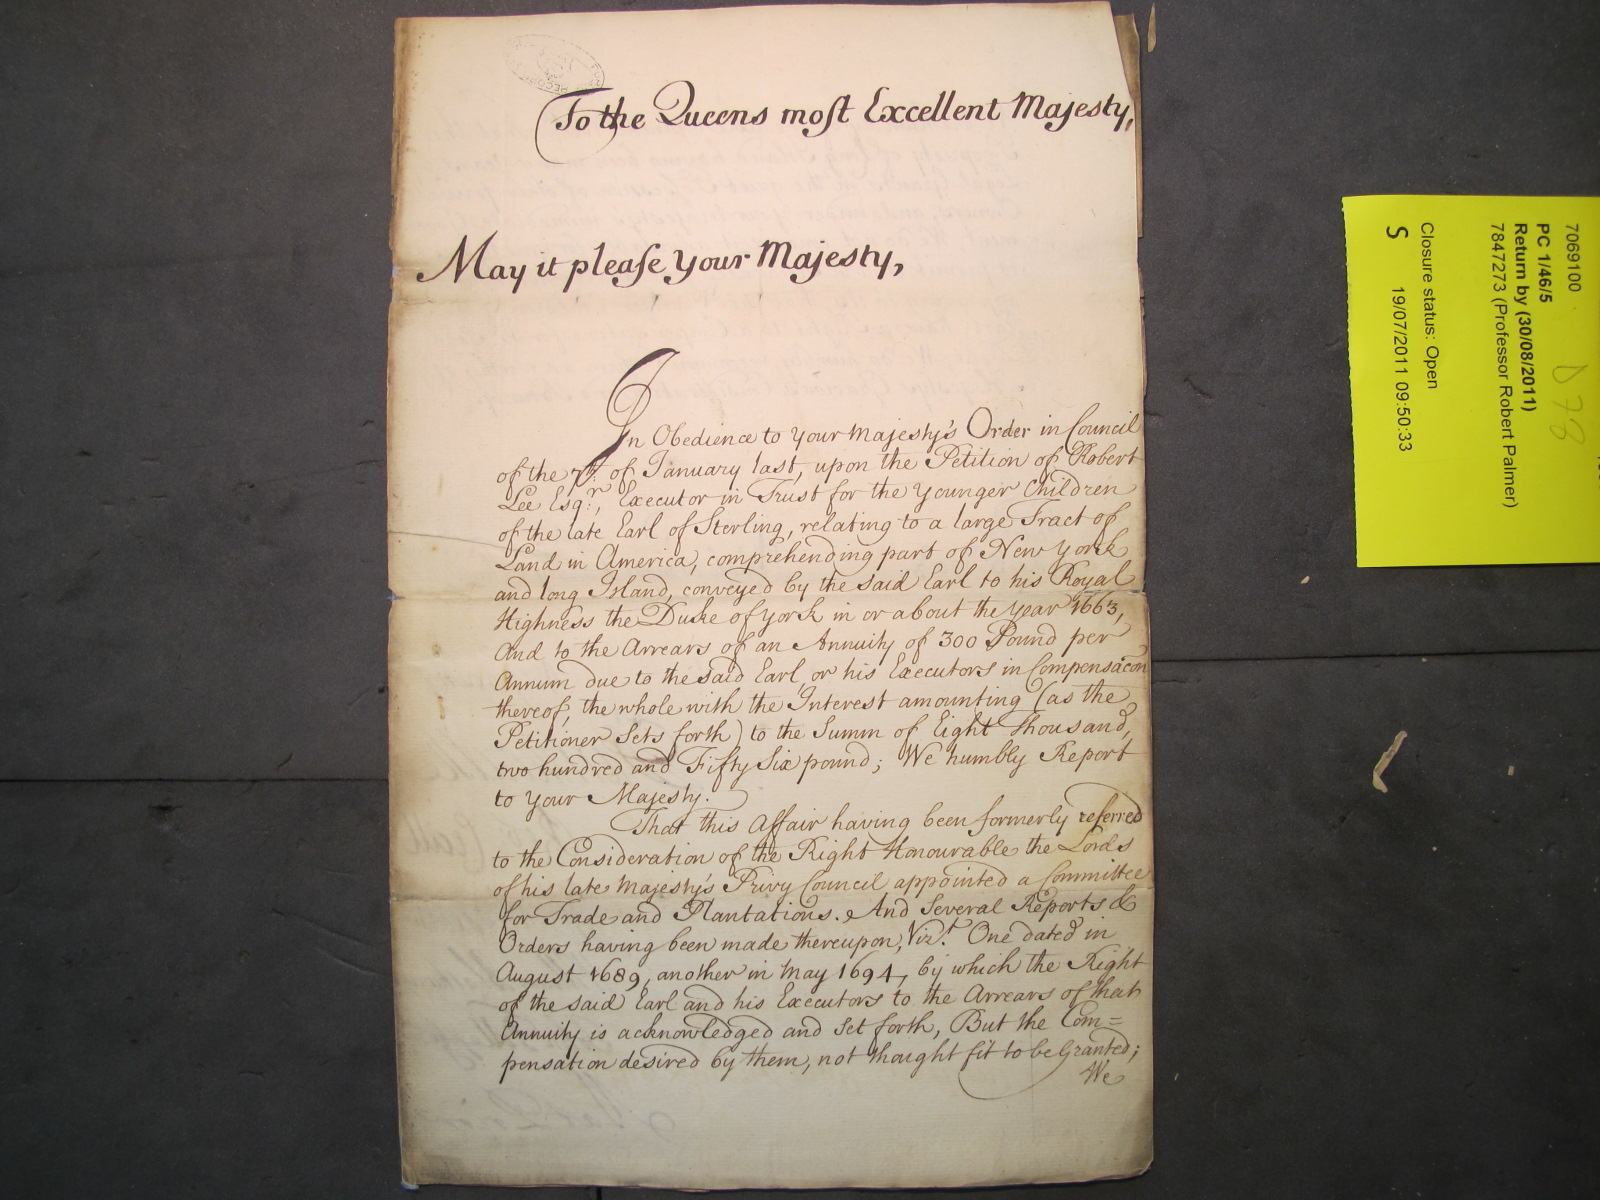 To the Queens most Excellent Majesty,
May it please Your Majesty,
In Obedience to Your Majesty's Order in Council
of the 7th. of January last, upon the Petition of Robert
Lee Esqr., Executor in Trust for the Younger Children
of the late Earl of Sterling, relating to a large Tract of
Land in America, comprehending part of New York
and long Island, conveyed by the said Earl to his Royal
Highness the Duke of York in or about the Year 1663,
And to the Arrears of an Annuity of 300 Pound per
Annum due to the said Earl, or his Executors in Compensacon
thereof, the whole with the Interest amounting (as the
Petitioner Sets forth) to the Summ of Eight Thousand,
two hundred and Fifty Six pound; We humbly Report
to Your Majesty.
That this Affair having been formerly referred
to the Consideration of the Right Honourable the Lords
of his late Majesty's Privy Council appointed a Committee
for Trade and Plantations. And Several Reports &
Orders having been made thereupon, Vizt. One dated in
August 1689, another in May 1694, by which the Right
of the said Earl and his Executors to the Arrears of that
Annuity is acknowledged and set forth, But the Com=
pensation desired by them, not thought fit to be Granted;
We
7069100
PC 1/46/5
Return by (30/08/2011)
7847273 (Professor Robert Palmer)
Closure status: Open
S 19/07/2011 09:50:33